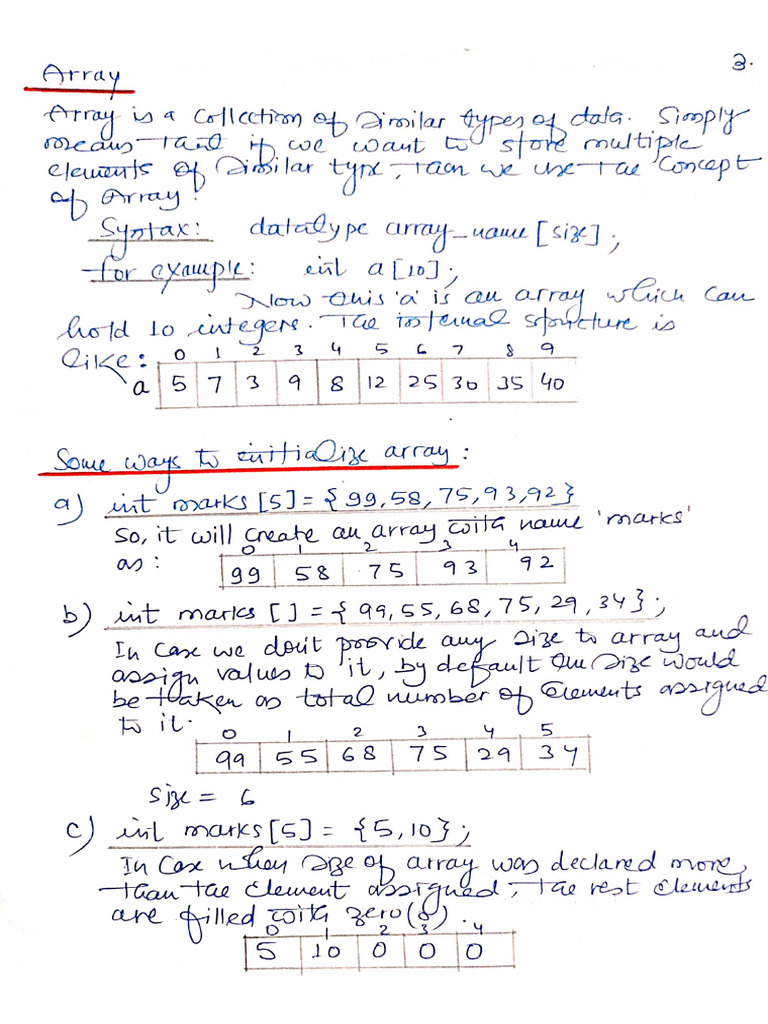 3.
Array
Array is a collection of similar types of data. Simply
means that if we want to store multiple
elements of similar type, then we use the concept
of Array.
Syntax: datatype array_name [size];
for example: int a[10];
Now this 'a' is an array which can
hold 10 integers. The internal structure is
like: 0 1 2 3 4 5 6 7 8 9
a 5 7 3 9 8 12 25 30 35 40
Some ways to initialize array:
a) int marks [5] = {99,58,75,93,92}
So, it will create an array with name 'marks'
0 1 2 3 4
as: 99 58 75 93 92
b) int marks [] = {99,55,68,75,29,34};
In case we don't provide any size to array and
assign values to it, by default the size would
be taken as total number of elements assigned
to it.
0 1 2 3 4 5
99 55 68 75 29 34
size = 6
c) int marks[5] = {5,10};
In case when size of array was declared more
than the element assigned, the rest elements
are filled with zero(s).
0 1 2 3 4
5 10 0 0 0